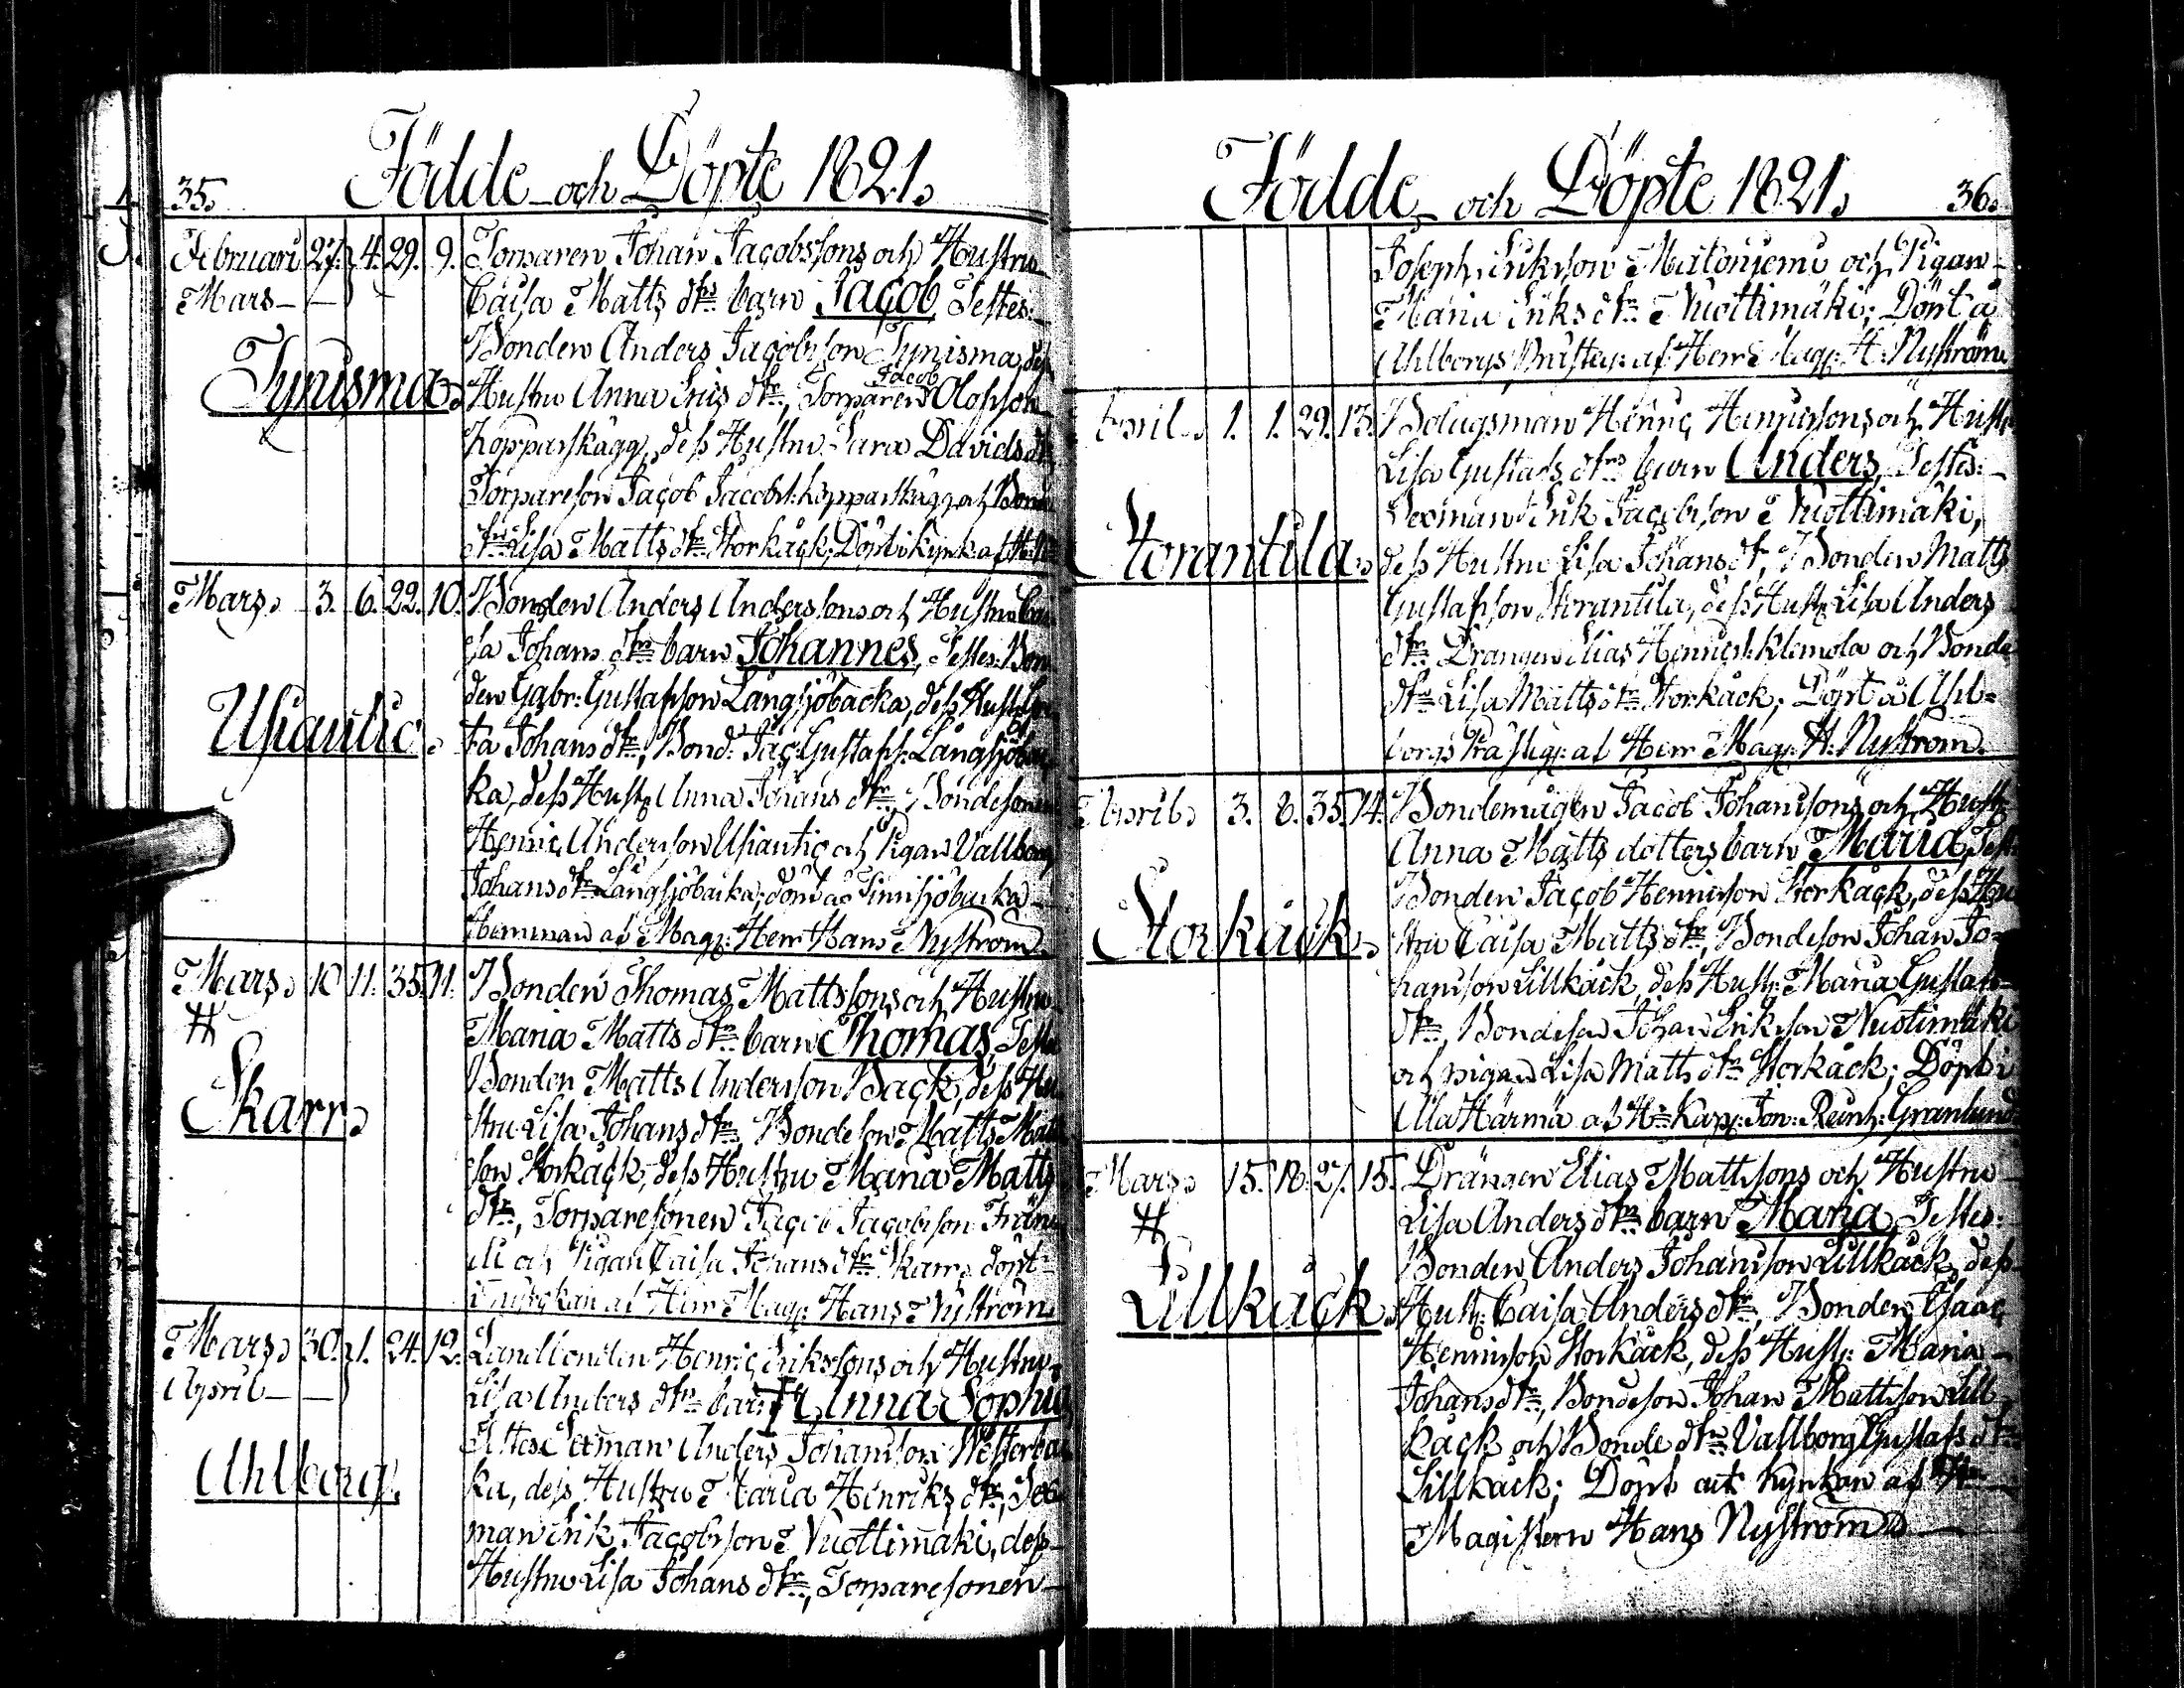 35.
Födde och Döpte 1821.
Februari 27. 4. 29. 9. Torparen Johan Jacobssons och Hustru
Mars — — Caisa Matts dtrs barn Jacob, Testes:
Bonden Anders Jacobsson Tynisma, dess
Tynisma. Hustru Anna Eric dtr, Torparen Jacob Olofsson
Kopparskägg, dess Hustru Sara Davids dtr
Torpareson Jacob Jacobs: Kopparskägg och Bonde
dtr Lisa Matts dtr Storkack; Döpt i kyrk. af
Mars. 3. 6. 22. 10. Bonden Anders Anderssons och Hustru Cai
sa Johans dtrs barn Johannes, Testes: Bon
den Gabr: Gustafsson Långsjöbacka, dess Hust.
Usiantic. ta Johans dtr, Bond: Jac: Gustafs: Långsjöbac
ka, dess Hust. Anna Johans dtr, Bondesonen
Henric Andersson Usiantic och Pigan Vallborg
Johans dtr Långsjöbacka; döpt å
Hemman af Mag: Herr Hans Nyström.
Mars. 10 11. 35. 11. Bonden Thomas Mattssons och Hustru
# Maria Matts dtrs barn Thomas, Testes
Bonden Matts Andersson Back, dess Hu
Skarr. stru Lisa Johans dtr, Bondeson Matts Matts
son Storkack, dess Hustru Maria Matts
dtr, Torparesonen Jacob Jacobsson Frän
och Pigan Caisa Johans dtr Skarr. döpt
i kyrckan af Herr Mag: Hans Nyström.
Mars. 30. 1. 24. 12. Landbonden Henric Erikssons och Hustru
April — — Lisa Anders dtrs barn † Anna Sophia
Testes: Sexman Anders Johansson Westerbac
Ahlborg. ka, dess Hustru Maria Henriks dtr, Sex
man Erik Jacobsson Nuottimäki, dess
Hustru Lisa Johans dtr, Torparesonen
Födde och Döpte 1821. 36.
Joseph Eriksson och Pigan
Maria Eriks dtr Nuottimäki; Döpt å
Ahlborgs af Herr Mag: H: Nyström
April. 1. 1. 29. 13. Bolagsman Henric Henricssons och Hustr
Lisa Gustafs dtrs barn Anders, Testes:
Sexman Erik Jacobsson Nuottimäki,
Storantila. dess Hustru Lisa Johans dtr, Bonden Matts
Gustafsson Storantila, dess Hust. Lisa Anders
dtr, Drängen Elias Henrics: Klemola och Bonde
dtr Lisa Matts dtr Storkack; Döpt å Ahl=
borgs af Herr Mag: H: Nyström.
April. 3. 8. 35. 14. Bondemågen Jacob Johanssons och Hustr
Anna Matts dotters barn Maria, Test:
Bonden Jacob Henricsson Storkack, dess Hu
Storkack. stru Caisa Matts dtr, Bondeson Johan Jo=
hansson Lillkack, dess Hustr: Maria Gustafs
dtr, Bondeson Johan Eriksson Nuotimäki
och pigan Lisa Matts dtr Storkack; Döpt i
Ala Härmä af Hr Kapp: Jon: Reinh: Granlund
Mars. 15. 18. 27. 15. Drängen Elias Mattssons och Hustru
# Lisa Anders dtrs barn Maria, Testes:
Bonden Anders Johansson Lillkack, dess
Lillkack. Hustr: Caisa Anders dtr, Bonden Isaac
Henricsson Storkack, dess Hustr: Maria
Johans dtr, Bondeson Johan Mattsson Lill
kack och Bonde dtr Vallborg Gustafs dtr
Lillkack; Döpt uti Kyrkan af Hr
Magistern Hans Nyström